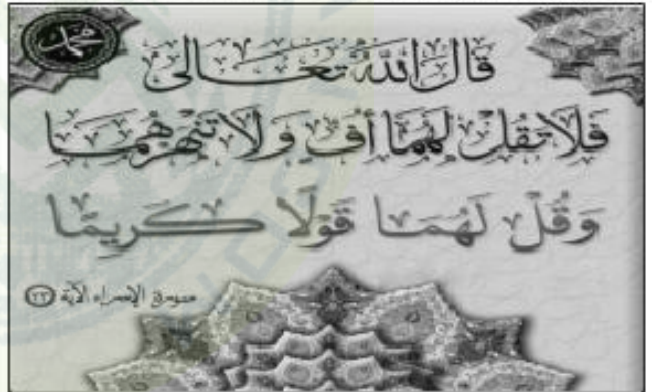 محمد
قال الله تعالى
فلا تقل لهما أف ولا تنهرهما
وقل لهما قولا كريما
سورة الإسراء الآية ٢٣